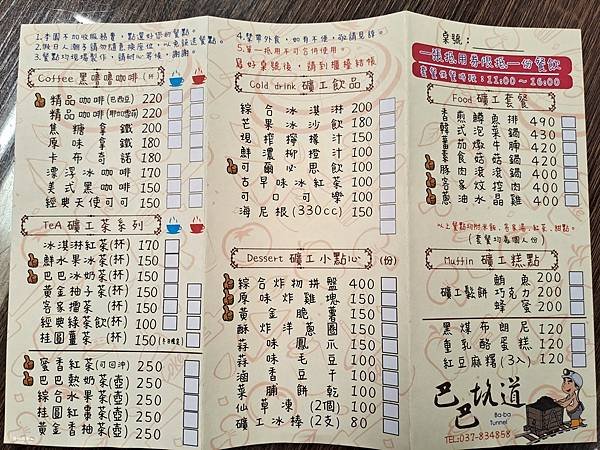 1.本園不加收服務費,點選好您的餐點。
2.假日人潮多請勿隨意換座位,以免誤送餐點。
3.餐點均現場製作,請耐心等候,謝謝。
Coffee 黑嚕嚕咖啡(杯)
精品咖啡(巴西豆) 220
精品咖啡(耶加雪菲) 220
焦糖拿鐵 200
原味拿鐵 180
卡布奇諾 180
漂浮冰咖啡 170
美式黑咖啡 150
經典天使可可 150
TeA 礦工茶系列
冰淇淋紅茶(杯) 170
鮮水果冰茶(杯) 150
巴巴冰奶茶(杯) 150
黃金柚子茶(杯) 150
客家擂茶 (杯) 150
經典綠茶飲(杯) 100
桂圓薑茶 (杯) 150
蜜香紅茶(可回沖) 250
巴巴熱奶茶(壺) 250
綜合水果茶(壺) 250
桂圓紅棗茶(壺) 250
黃金香柚茶(壺) 250
4.禁帶外食,如有不便,敬請見諒。
5.單一抵用不可合併使用。
寫好桌號後,請到櫃檯結帳
Cold drink 礦工飲品
綜合冰淇淋 200
芒果冰沙飲 180
現搾檸檬汁 150
鮮濃柳橙汁 150
可爾必思飲 150
古早味冰紅茶 100
可口可樂 100
海尼根(330cc) 150
Dessert 礦工小點心 (份)
綜合炸物拼盤 400
原味炸雞塊 150
黃金脆薯 150
酥炸洋蔥圈 150
蒜味鳳爪 150
蒜味毛豆 100
滷香豆干 100
菜脯餅乾 100
仙草凍(2個) 100
礦工冰棒(2支) 80
桌號:
一張抵用券限抵一份餐飲
套餐供餐時段:11:00~16:00
Food 礦工套餐
香煎鯛魚排 490
韓式泡菜鍋 430
蕃茄燉牛腩 420
素食菇菇鍋 420
豚肉滾滾鍋 430
客家炆控肉 430
蔥油水晶雞 430
以上餐點均附米飯、客家湯、紅茶、甜點。
(套餐均為個人份)
Muffin 礦工糕點
鮪魚 200
礦工鬆餅 巧克力 200
蜂蜜 200
黑煤布朗尼 120
重乳酪蛋糕 120
紅豆麻糬(3入) 120
巴巴坑道
Ba-ba
Tunnel
TEL:037-834858